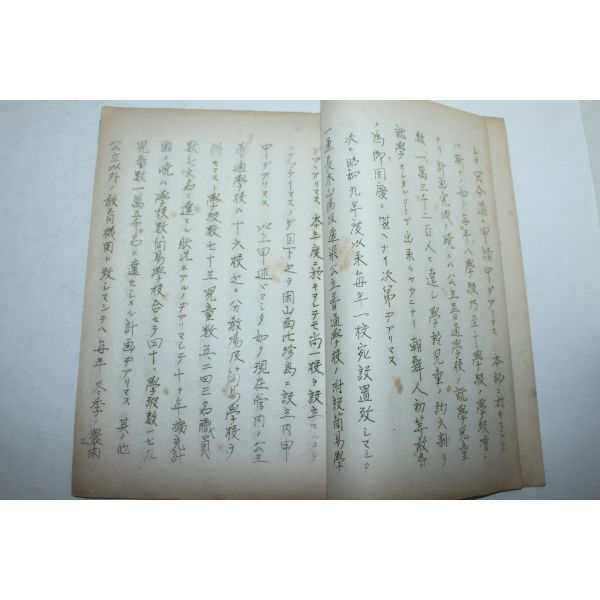 本郡ニ於キマシテ
シテ安全道ニ申請中デアリマス
ハ斯クノ如ク毎年八学級乃至十学級ノ学級増ト
ナリ計画完成ノ暁ニハ公立普通学校ノ就学児童
数一萬三千二百人ニ達シ学齢児童ノ約六割ヲ
就学セシメ得ル 出来 朝鮮人初等教育
ノ為御同慶ニ堪ヘナイ次第デアリマス
次ニ昭和九年度以来毎年一校宛設置致シマシタ
一道長木山陽及遠梁公立普通学校ノ附設簡易学
デアリマス本年度ニ於キマシテモ尚一校ヲ設立
目下之ヲ閑山面比珍島ニ設立内申
中デアリマス 以上申述ベマシタ如ク現在管内ノ公立
普通学校ハ十六校之ニ分教場及簡易学校ヲ
併セマスト学級数七十五児童数五二四三名職員
数七六名ニ達スル状況ニアルノデアリマシテ十ヶ年拡充計
画ノ暁ハ学校数簡易学校合セテ四十、学級数一七九
児童数一萬五千名ニ達セシメル計画デアリマス 其ノ他
公立以外ノ教育機関ト致シマシテハ毎年 冬季ノ農閑
三